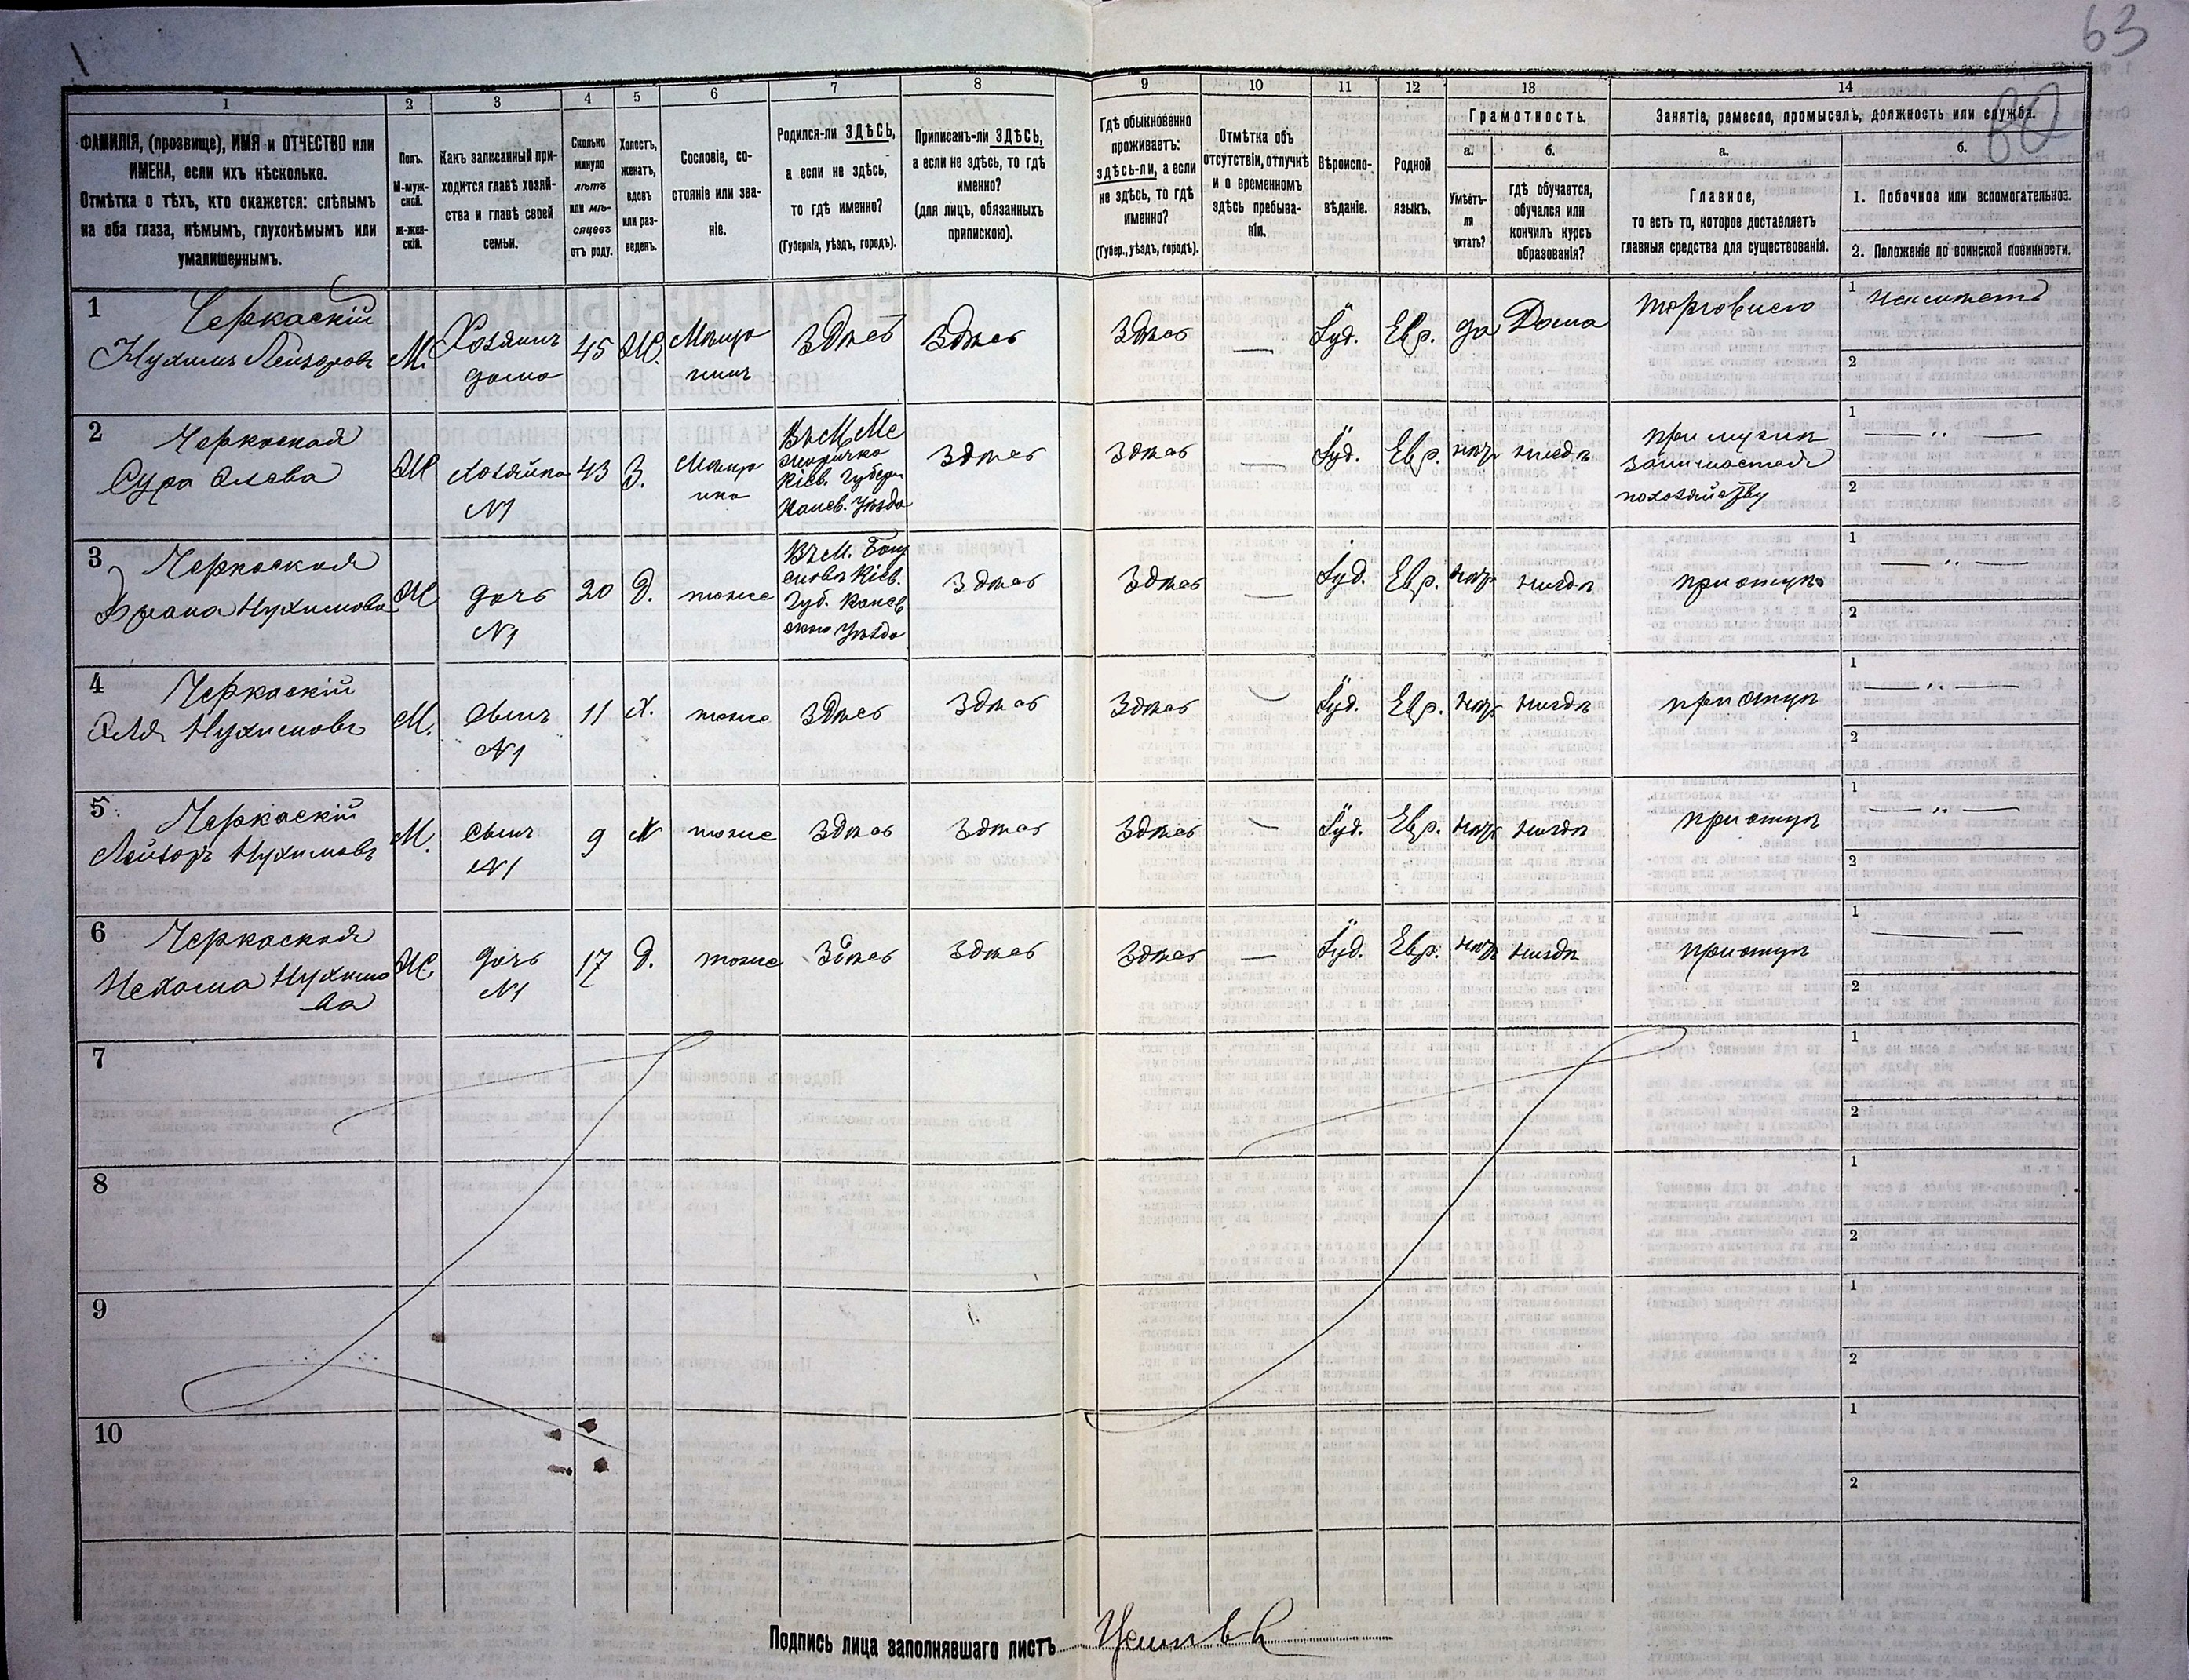 63
80
1
2
3
4
5
6
7
8
9
10
11
12
13
14
ФАМИЛІЯ, (прозвище), ИМЯ и ОТЧЕСТВО или
ИМЕНА, если ихъ нѣсколько.
Отмѣтка о тѣхъ, кто окажется: слѣпымъ
на оба глаза, нѣмымъ, глухонѣмымъ или
умалишеннымъ.
Полъ.
М-муж-
ской.
Ж-жен-
скій.
Какъ записанный при-
ходится главѣ хозяй-
ства и главѣ своей
семьи.
Сколько
минуло
лѣтъ
или мѣ-
сяцевъ
отъ роду.
Холостъ,
женатъ,
вдовъ
или раз-
веденъ.
Сословіе, со-
стояніе или зва-
ніе.
Родился-ли ЗДѢСЬ,
а если не здѣсь,
то гдѣ именно?
(Губернія, уѣздъ, городъ).
Приписанъ-ли ЗДѢСЬ,
а если не здѣсь, то гдѣ
именно?
(для лицъ, обязанныхъ
припискою).
Гдѣ обыкновенно
проживаетъ:
здѣсь-ли, а если
не здѣсь, то гдѣ
именно?
(Губер., уѣздъ, городъ).
Отмѣтка объ
отсутствіи, отлучкѣ
и о временномъ
здѣсь пребыва-
ніи.
Вѣроиспо-
вѣданіе.
Родной
языкъ.
Грамотность.
а.
б.
Умѣетъ-
ли
читать?
гдѣ обучается,
обучался или
кончилъ курсъ
образованія?
Занятіе, ремесло, промыселъ, должность или служба.
а.
б.
Главное,
то есть то, которое доставляетъ
главныя средства для существованія.
1. Побочное или вспомогательное.
2. Положеніе по воинской повинности.
1
Черкаскій
Нухимъ Лейзоровъ
М.
Хозяинъ
дома
45
Ж.
Мѣща
нинъ
Здѣсь
Здѣсь
Здѣсь
—
Іуд.
Евр.
да
Дома
торговцемъ
1
2
2
Черкаская
Сура
Ж
хозяйка
N1
43
З.
Мѣща
нка
Кіев. Губерн
Канев. Уѣзда
Здѣсь
Здѣсь
—
Іуд.
Евр.
нѣтъ
нигдѣ
при мужѣ
занимается
по хозяйству
1
— „ —
2
3
Черкаская
Нухимова
Ж
дочь
N1
20
д.
тоже
Кіев.
Губ. Канев
скаго Уѣзда
Здѣсь
Здѣсь
—
Іуд.
Евр.
нѣтъ
нигдѣ
при отцѣ
1
— „ —
2
4
Черкаскій
Нухимовъ
М.
сынъ
N1
11
х.
тоже
Здѣсь
Здѣсь
Здѣсь
—
Іуд.
Евр.
нѣтъ
нигдѣ
при отцѣ
1
— „ —
2
5
Черкаскій
Лейзоръ Нухимовъ
М.
сынъ
N1
9
х
тоже
Здѣсь
Здѣсь
Здѣсь
—
Іуд.
Евр.
нѣтъ
нигдѣ
при отцѣ
1
— „ —
2
6
Черкаская
Нехама Нухимо
ва
Ж
дочь
N1
17
д.
тоже
Здѣсь
Здѣсь
Здѣсь
—
Іуд.
Евр.
нѣтъ
нигдѣ
при отцѣ
1
— —
2
7
1
2
8
1
2
9
1
2
10
1
2
Подпись лица заполнявшаго листъ